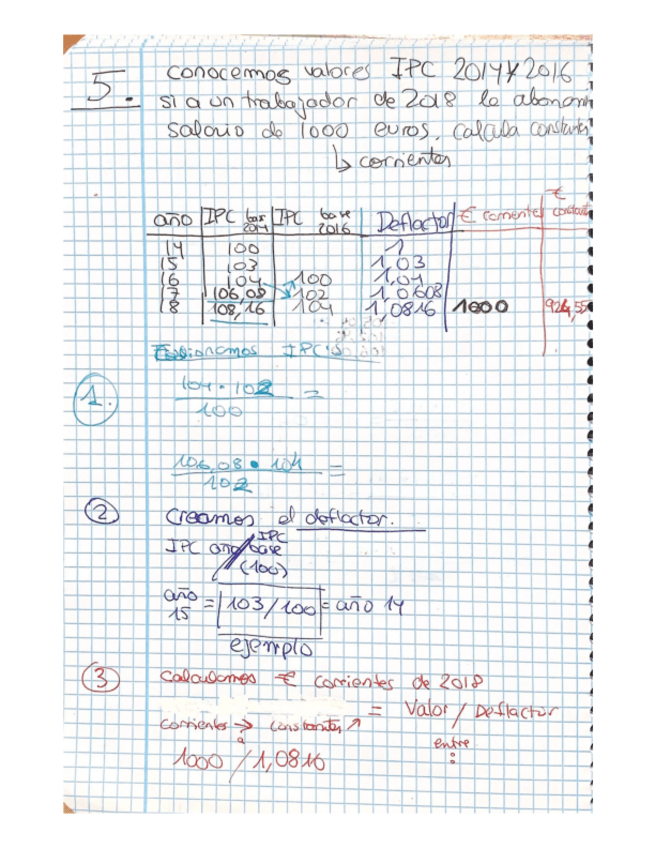 5. conocemos valores IPC 2014 y 2016
si a un trabajador de 2018 le abonan
salario de 1000 euros, calcula constantes
↳ corrientes
año | IPC base 2014 | IPC base 2016 | Deflactor | € corriente | € constante
14 100 1
15 103 1,03
16 104 100 1,04
17 106,08 102 1,0608
18 108,16 104 1,0816 1000 924,55
Fusionamos IPC's
1. 104 · 102 / 100 =
106,08 · 104 / 102 =
2 Creamos el deflactor.
IPC año / IPC base
(100)
año 15 = 103/100 = año 14
ejemplo
3 Calculamos € corrientes de 2018
= Valor / Deflactor
corrientes → constantes ↗
a
entre
:
1000 / 1,0816